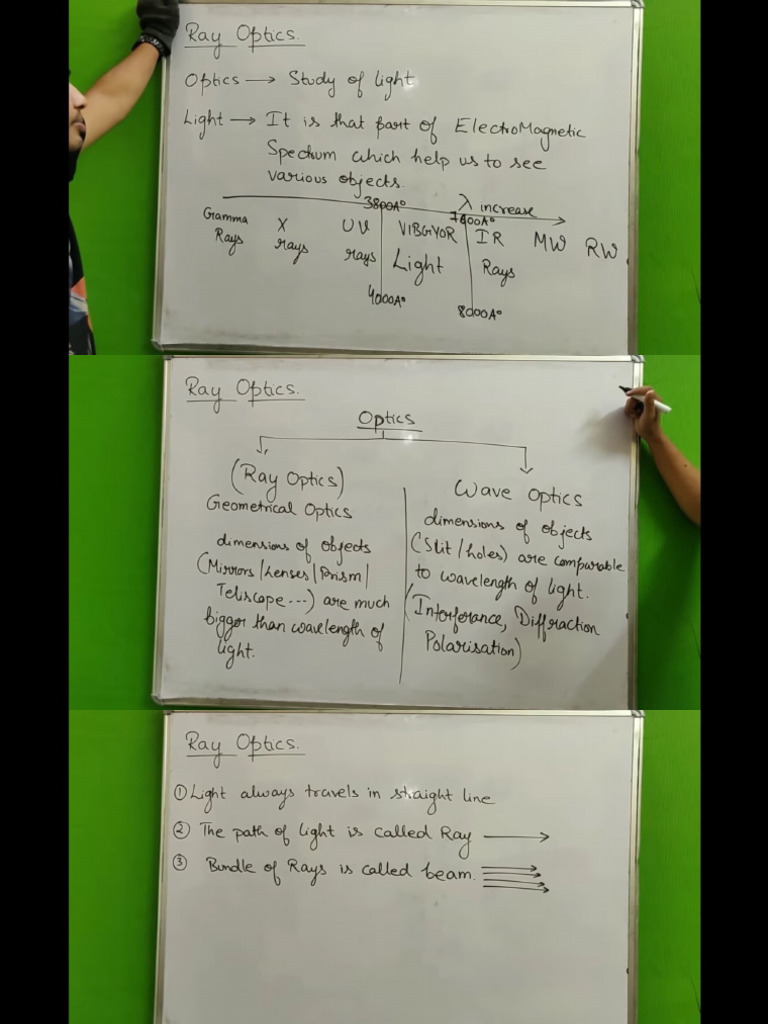 Ray Optics.
Optics → Study of light
Light → It is that part of ElectroMagnetic
Spectrum which help us to see
various objects.
λ increase
3800A°
7600A°
Gamma Rays
X rays
UV rays
VIBGYOR
Light
IR Rays
MW
RW
4000A°
8000A°
Ray Optics.
Optics
(Ray Optics)
Geometrical Optics
dimensions of objects
(Mirrors/Lenses/Prism/
Teliscope ...) are much
bigger than wavelength of
light.
Wave Optics
dimensions of objects
(Slit/holes) are comparable
to wavelength of light.
(Interferance, Diffraction
Polarisation)
Ray Optics.
① Light always travels in straight line
② The path of light is called Ray →
③ Bundle of Rays is called beam.